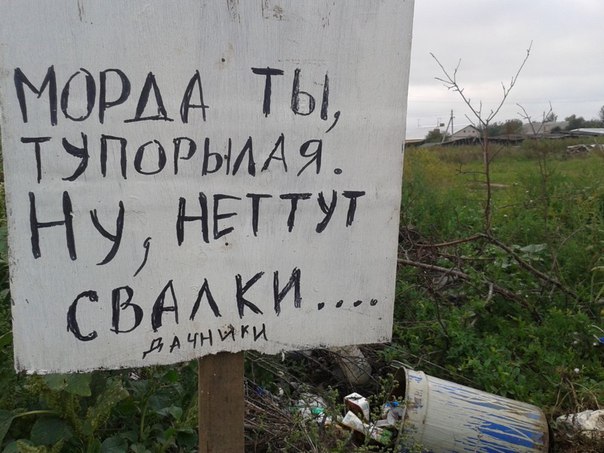 МОРДА ТЫ,
ТУПОРЫЛАЯ.
НУ, НЕТ ТУТ
СВАЛКИ....
ДАЧНИКИ